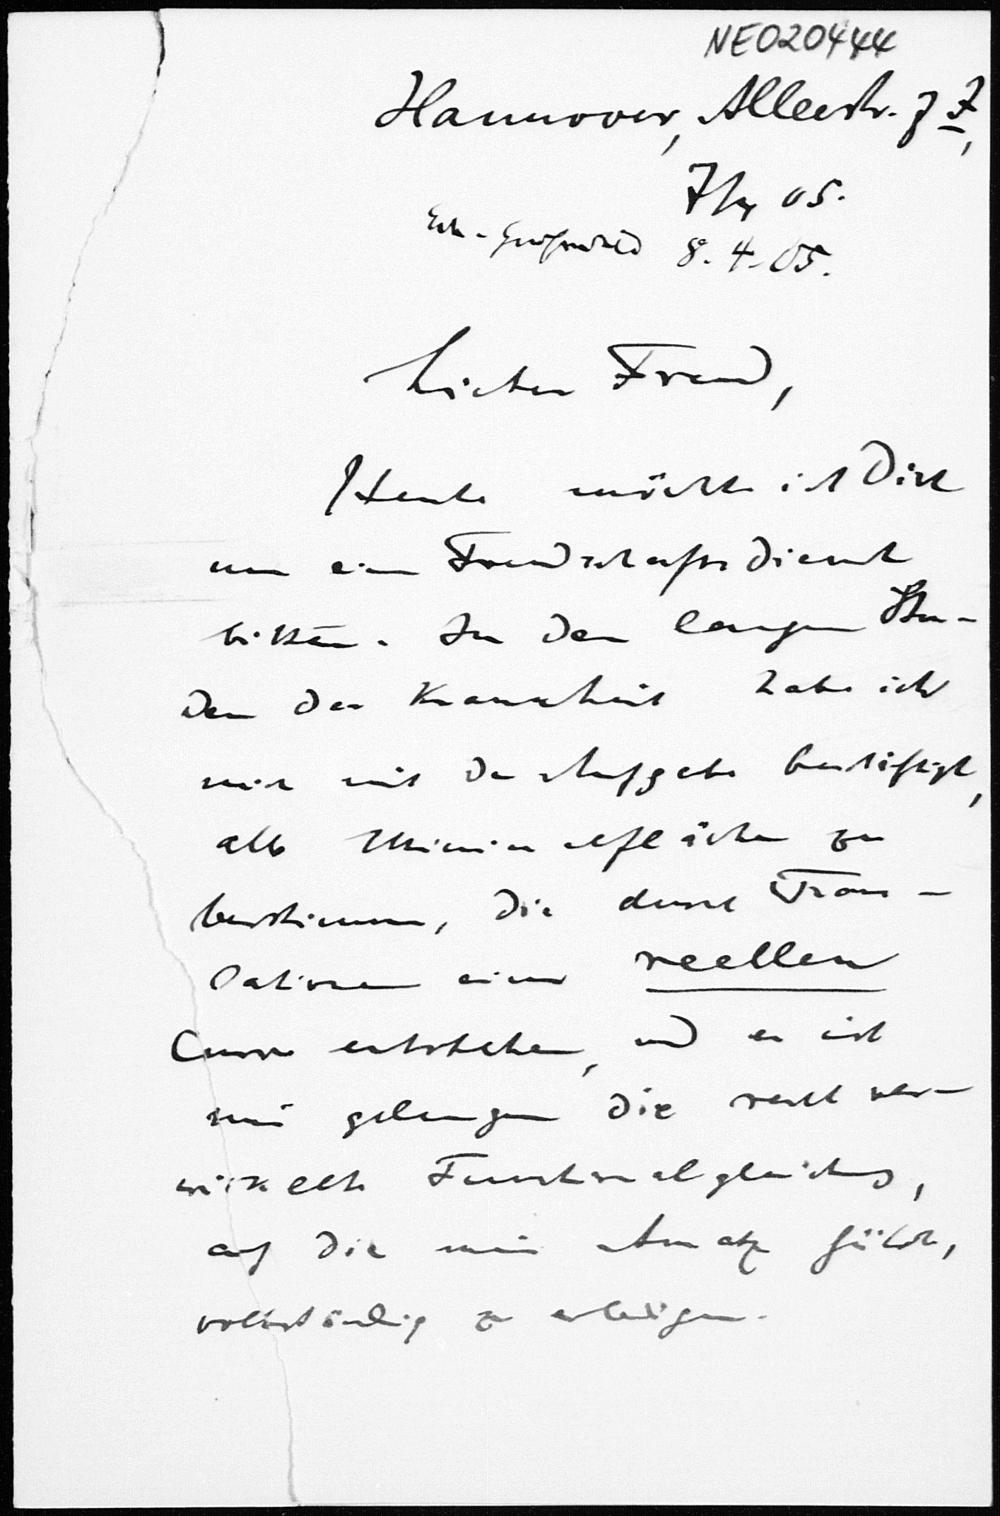 NE020444
Hannover, Alleestr. 7 I,
7/4 05.
8.4.05.
Lieber Freund,
Heute möchte ich Dich
um einen Freundschaftsdienst
bitten. In den langen Stun-
den der Krankheit habe ich
mich mit der Aufgabe beschäftigt,
alle Minimalflächen zu
bestimmen, die durch Trans-
lationen einer reellen
Curve entstehen, und es ist
mir gelungen die recht ver-
wickelte Functionalgleichung,
auf die mein Ansatz führt,
vollständig zu erledigen.